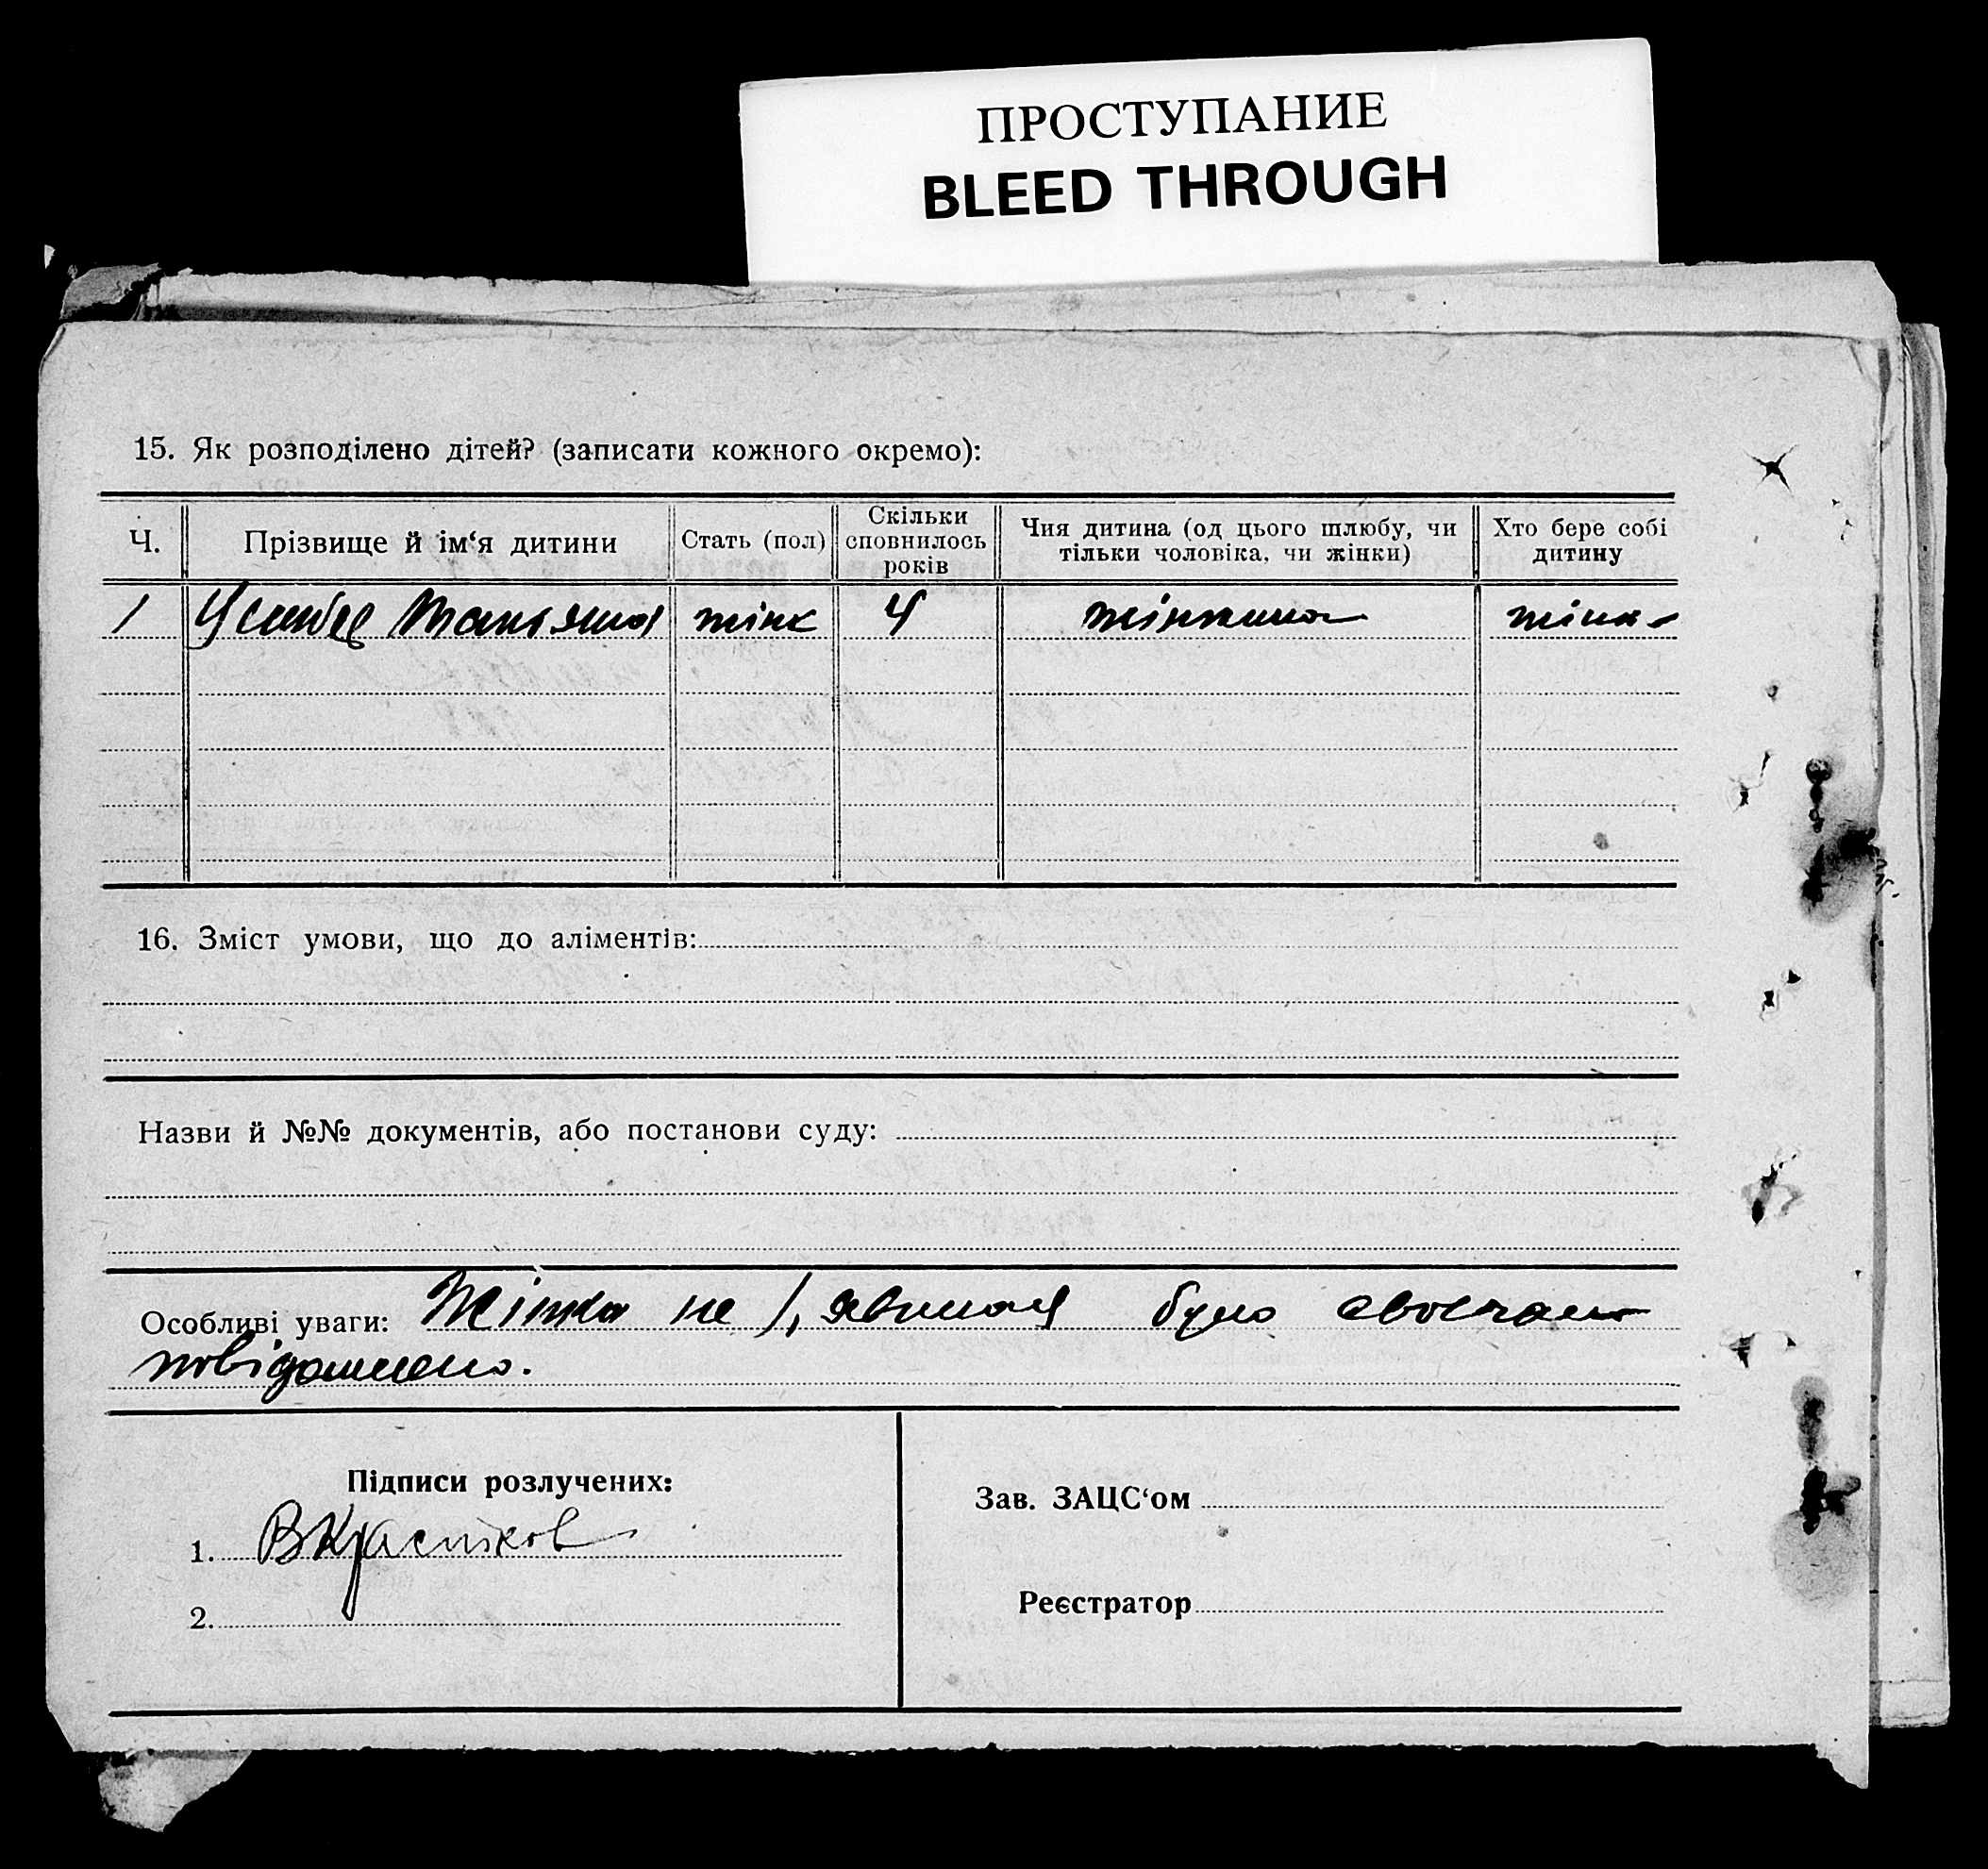 ПРОСТУПАНИЕ
BLEED THROUGH
15. Як розподілено дітей? (записати кожного окремо):
Ч. Прізвище й ім‘я дитини Стать (пол) Скільки сповнилось років Чия дитина (од цього шлюбу, чи тільки чоловіка, чи жінки) Хто бере собі дитину
1 Татьяна жінк 4 жінкина жінка
16. Зміст умови, що до аліментів:
Назви й №№ документів, або постанови суду:
Особливі уваги: Жінка не з'явилася було своєчасно
повідомлено.
Підписи розлучених:
Зав. ЗАЦС‘ом
1. ВКрасніков
Реєстратор
2.